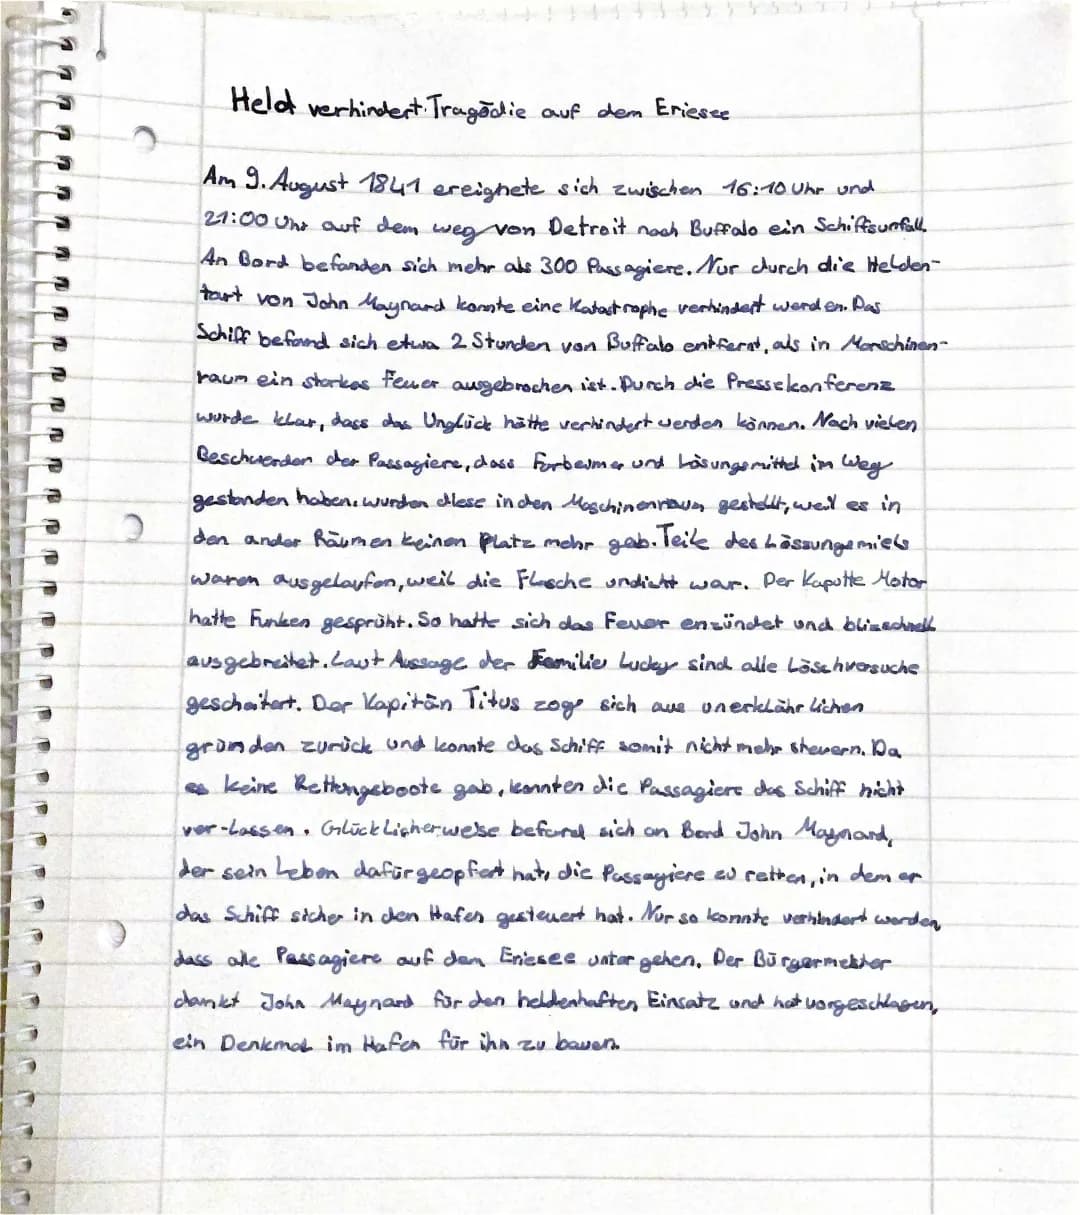 Held verhindert Tragödie auf dem Eriesee
Am 9. August 1841 ereignete sich zwischen 16:10 Uhr und
21:00 Uhr auf dem weg von Detroit nach Buffalo ein Schiffsunfall.
An Bord befanden sich mehr als 300 Passagiere. Nur durch die Helden-
tart von John Maynard konnte eine Katastrophe verhindert werden. Das
Schiff befand sich etwa 2 Stunden von Buffalo entfernt, als in Marschinen-
raum ein starkes Feuer ausgebrochen ist. Durch die Pressekonferenz
wurde klar, dass das Unglück hätte verhindert werden können. Nach vielen
Beschwerden der Passagiere, dass Farbeimer und Lösungsmittel im Weg
gestanden haben, wurden diese in den Maschinenraum gestellt, weil es in
den ander Räumen keinen Platz mehr gab. Teile des Lössungsmiels
waren ausgelaufen, weil die Flasche undicht war. Der Kaputte Motor
hatte Funken gesprüht. So hatte sich das Feuer enzündet und blizschnell
ausgebreitet. Laut Aussage der Familie Lucky sind alle Löschversuche
gescheitert. Der Kapitän Titus zog sich aus unerklährlichen
gründen zurück und konnte das Schiff somit nicht mehr steuern. Da
es keine Rettengsboote gab, konnten die Passagiere das Schiff nicht
ver-lassen. Glücklicherweise befand sich an Bord John Maynard,
der sein Leben dafür geopfert hat, die Passagiere zu retten, in dem er
das Schiff sicher in den Hafen gesteuert hat. Nur so konnte verhindert werden,
dass alle Passagiere auf dem Eriesee unter gehen. Der Bürgermeister
dankt John Maynard für den heldenhaften Einsatz und hat vorgeschlagen,
ein Denkmal im Hafen für ihn zu bauen.